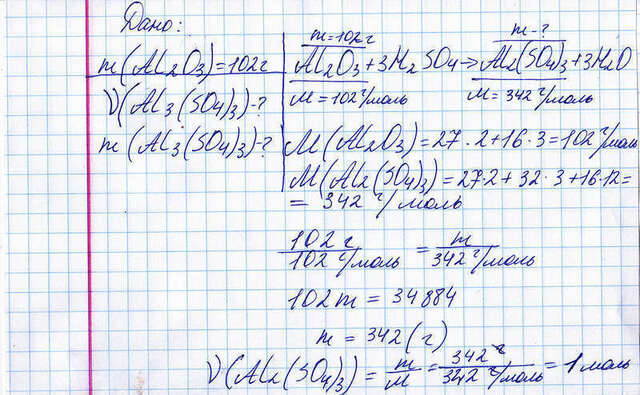 Дано:
m(Al2O3)=102г
ν(Al3(SO4)3)-?
m(Al3(SO4)3)-?
m=102г m-?
Al2O3+3H2SO4→Al2(SO4)3+3H2O
M=102г/моль M=342г/моль
M(Al2O3)=27·2+16·3=102г/моль
M(Al2(SO4)3)=27·2+32·3+16·12=
=342г/моль
102г/102г/моль=m/342г/моль
102m=34884
m=342(г)
ν(Al2(SO4)3)=m/M=342г/342г/моль=1моль